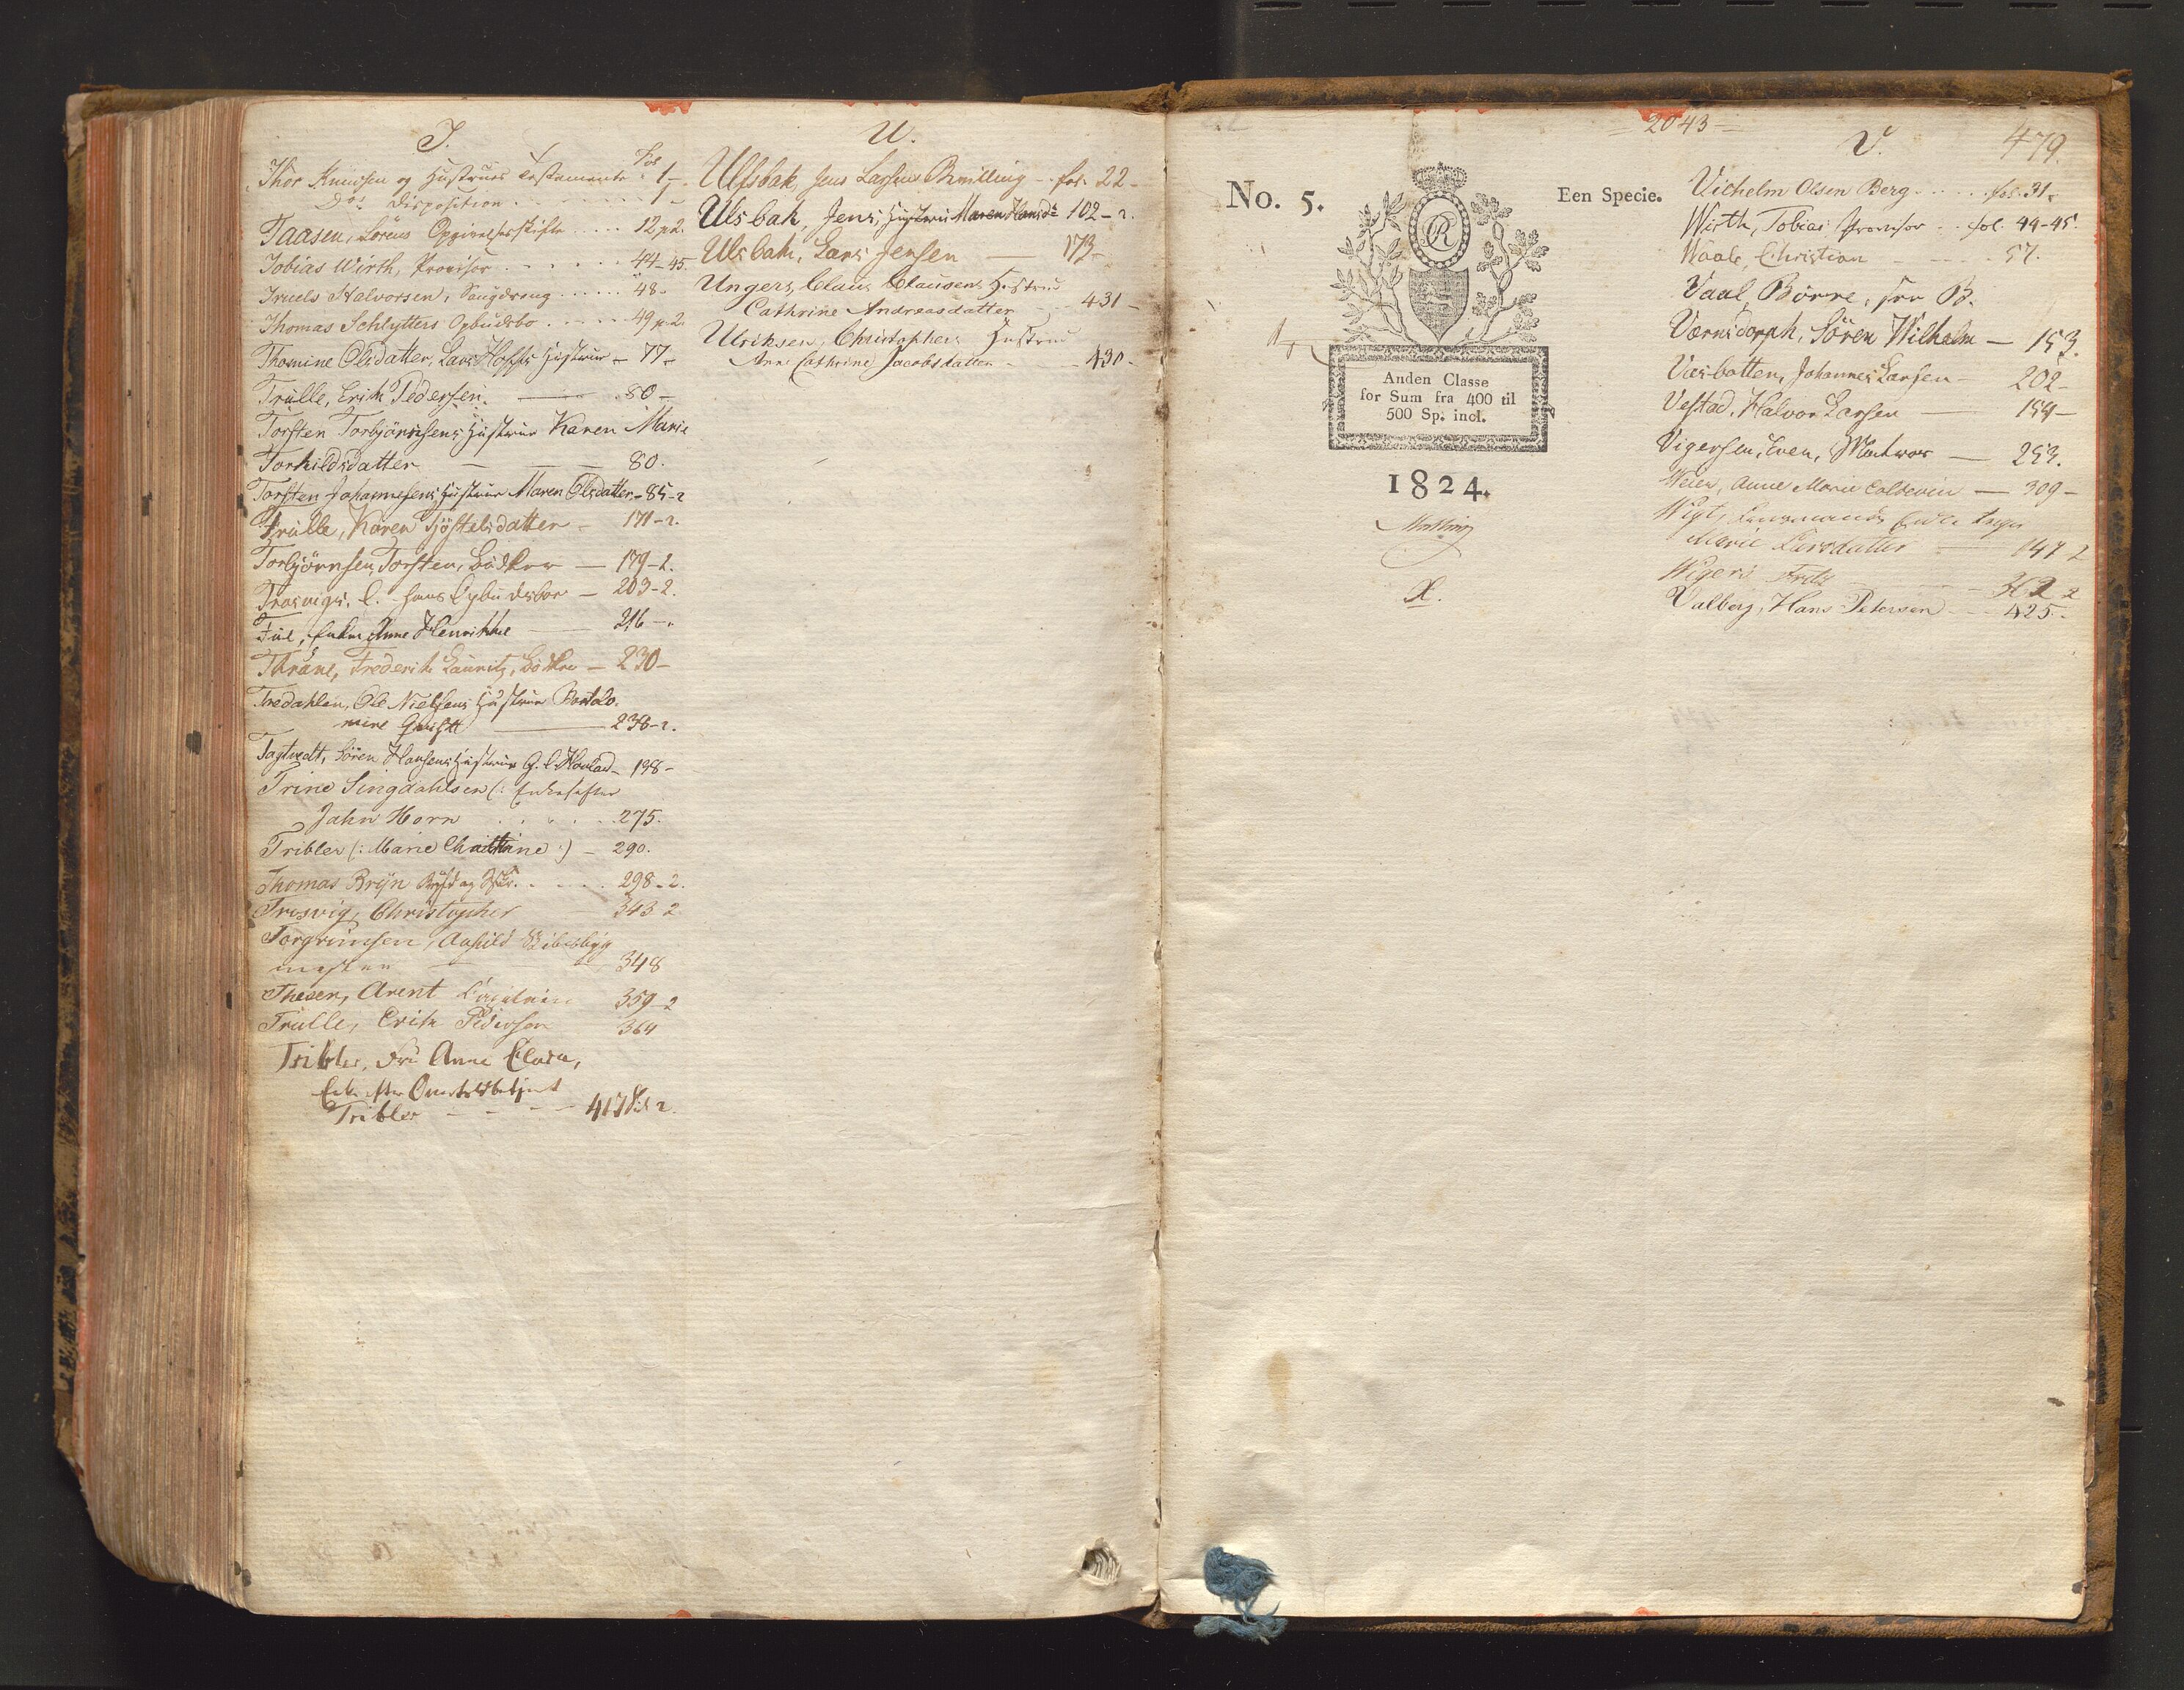 T.
Fol
Thor Knudsen og Hustrues Testamente . 1 -
Do: Disposition . . . . . . . 1 -
Taasen, Sörens Opgivelsesskifte . . . . 12 p 2.
Tobias Wirth, Provisor . . . . . . 44-45.
Truels Halvorsen, . . . . . 48.
Thomas Schlytters Opbudsbo . . . . . 49 p. 2.
Thomine Olsdatter, Lars Hoffs Hustrue - 77 -
Trulle, Erich Pedersen. — 80 -
Torsten Torbjörnsens Hustrue Karen Marie
Torkildsdatter — — — 80.
Torsten Johannesens Hustrue Maren Olsdatter - 85-2
Trulle, Karen Kjöstelsdatter - 171-2.
Torbjörnsen, Torsten, Bödker — 179-2.
Trosvigs, C. Hans Opbudsboe — 203-2.
Enke Anne Henrikke — 216 -
Thrane, Frederik Lauritz, Bödker — 230 -
Tredahlen, Ole Nielsens Hustrue Bartolo-
mine — 238-2.
Tagtvedt, Sören Hansens Hustrue G. C. - 198 -
Trine Singdahlsen (: Enke efter
Jahn Horn . . . . . 275.
Tribler (: Marie Chatrine :) - 290.
Thomas Bryn . . . . 298-2.
Trosvig, Christopher — 343 2
Torgrimsen, Aashild Skibsbyg
mester — 348
Thesen, Arent Capitain 359-2
Trulle, Erik Pedersen 364
Tribler, Fru Anne Elora,
Enke efter Overtoldbetjent
Tribler - - - - 417 Sid 2.
U.
Ulfsbak, Jens Larsens - fol. 22 -
Ulsbak, Jens, Hustrue Maren Hansdr 102-2.
Ulsbak, Lars Jensen — 173 -
Ungers, Claus Clausens Hustrue
Cathrine Andreasdatter - 431 -
Ulriksen, Christophers Hustrue
Ane Cathrine Jacobsdatter - - 430 -
= 2043 =
479.
V.
No. 5.
R
Een Specie.
Anden Classe
for Sum fra 400 til
500 Sp. incl.
1824.
Vilhelm Olsen Berg . . . . . fol. 31.
Wirth, Tobias Provisor . . fol. 44-45.
Waale, Christian - - - - - 57.
Vaal, Börre, see B.
Værnsdorph, Sören Wilhelm — 153.
Vasbotten, Johannes Larsen 202 -
Vestad, Halvor Larsen — 154 -
Vigersen, Even, — 253.
Weier, Anne Marie Coldevin — 309 -
Wigt, Lensmands Enke Inger
Marie Larsdatter — 147 2
Wigers Fritz — 362 2
Valberg, Hans Petersen - - - 425.